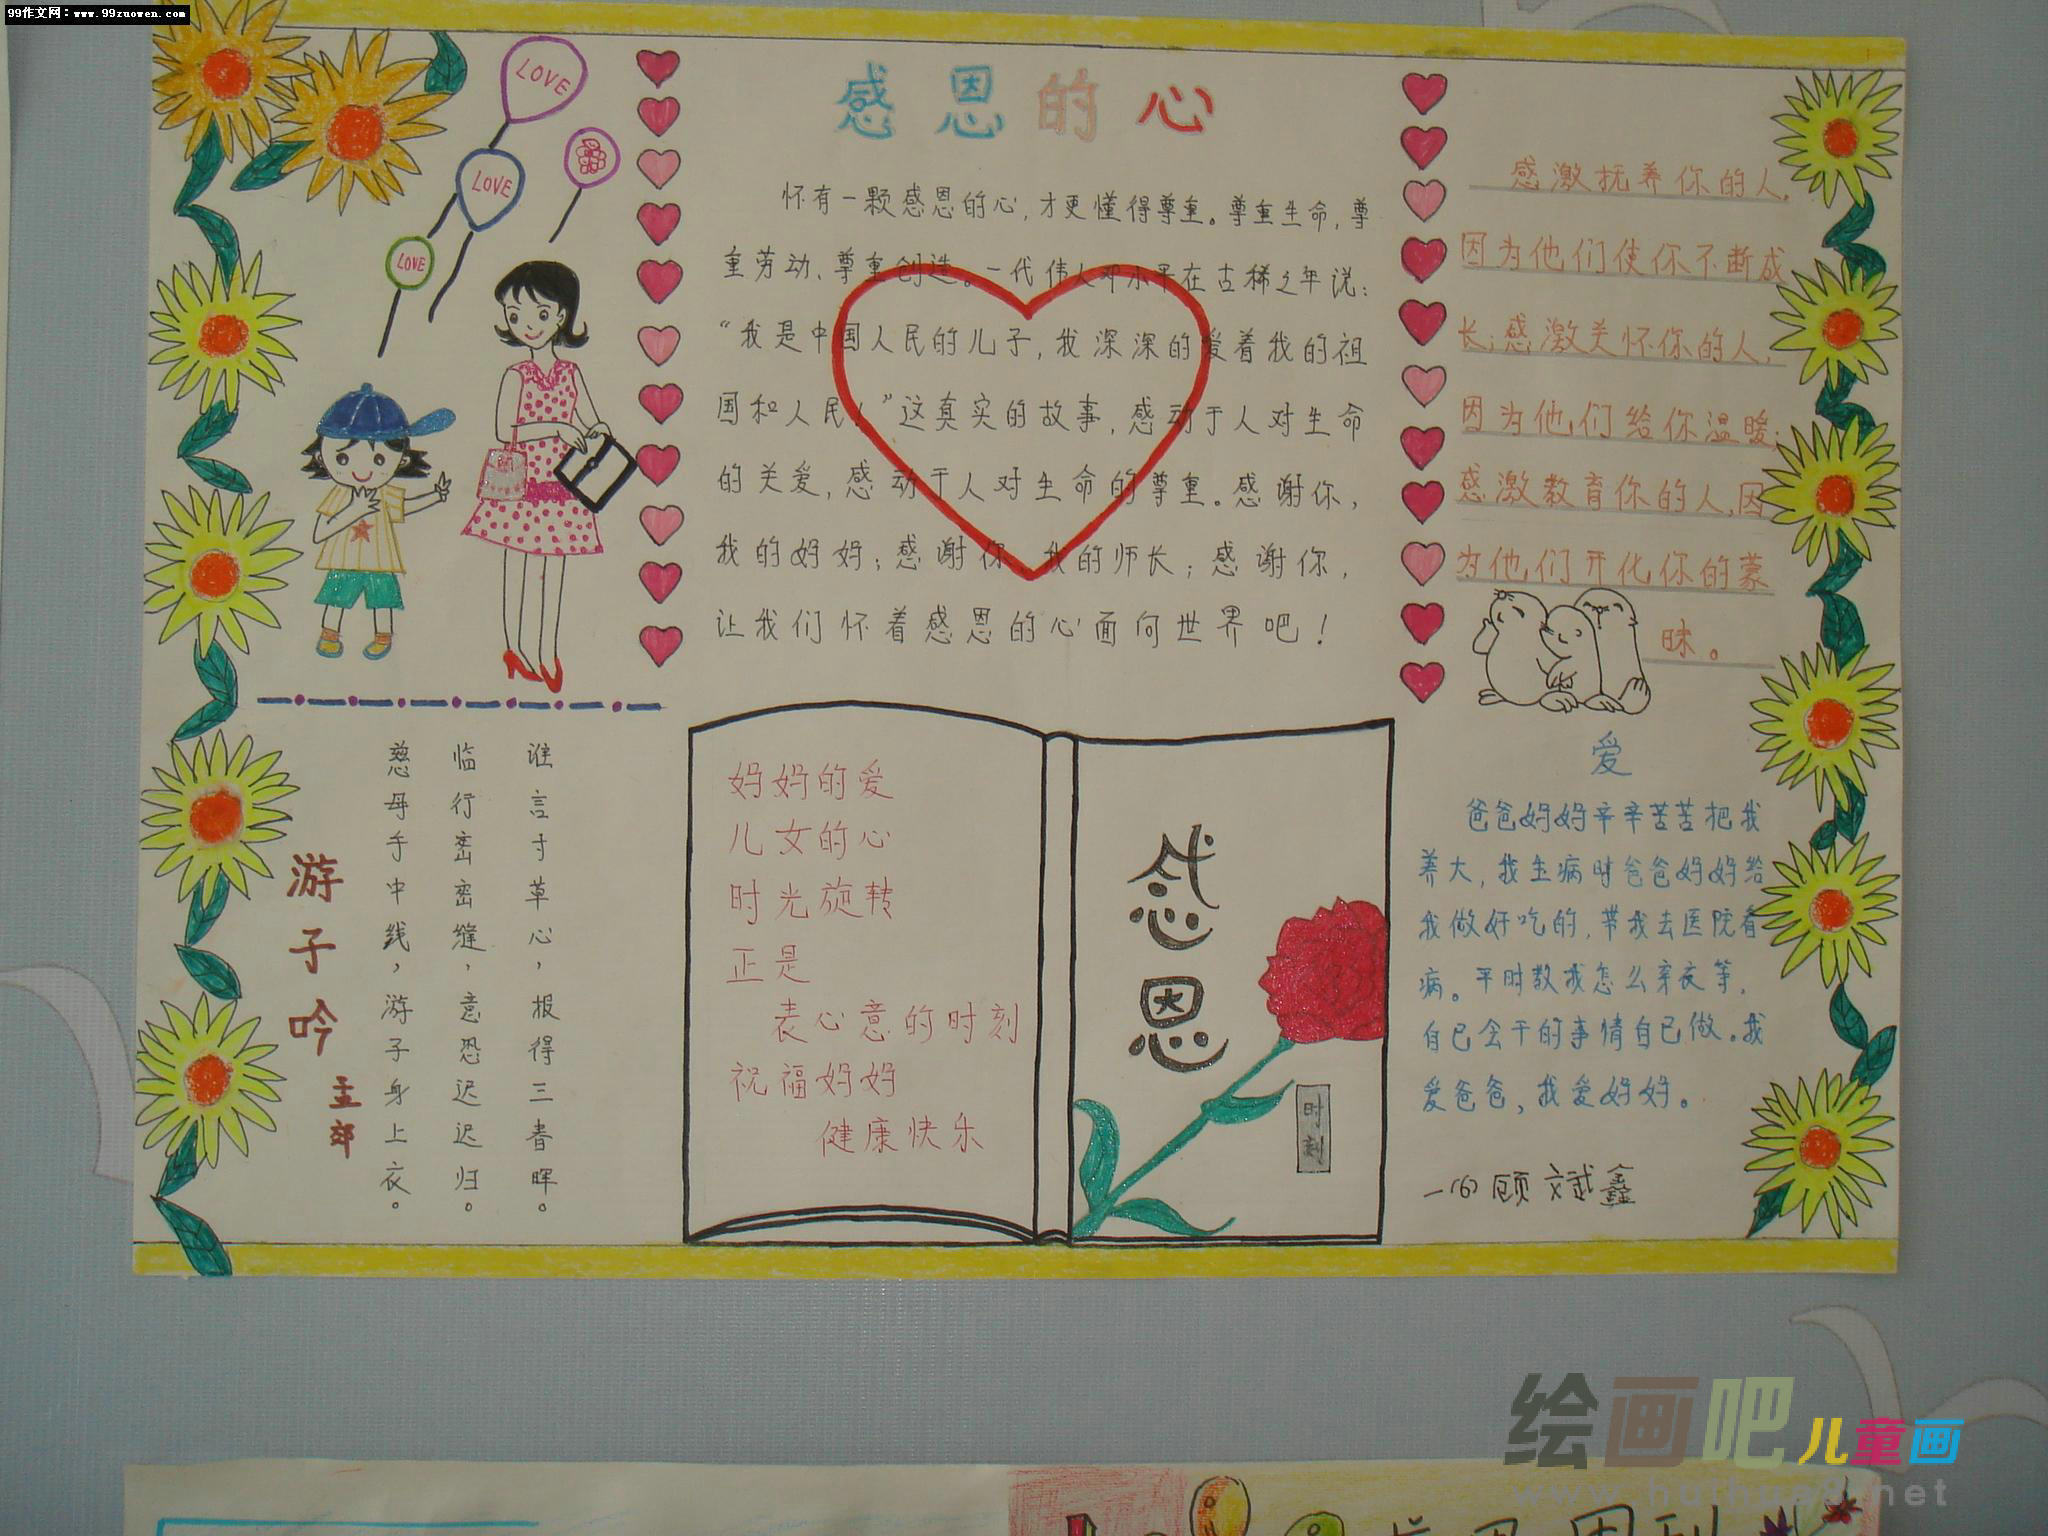 99作文网:www.99zuowen.com
LOVE
LOVE
LOVE
感恩的心
怀有一颗感恩的心,才更懂得尊重。尊重生命,尊
重劳动、尊重创造。一代伟人邓小平在古稀之年说:
“我是中国人民的儿子,我深深的爱着我的祖
国和人民!”这真实的故事,感动于人对生命
的关爱,感动于人对生命的尊重。感谢你,
我的妈妈;感谢你 我的师长;感谢你,
让我们怀着感恩的心面向世界吧!
感激抚养你的人,
因为他们使你不断成
长;感激关怀你的人,
因为他们给你温暖;
感激教育你的人,因
为他们开化你的蒙
昧。
游子吟
孟郊
慈母手中线,游子身上衣。
临行密密缝,意恐迟迟归。
谁言寸草心,报得三春晖。
妈妈的爱
儿女的心
时光旋转
正是
表心意的时刻
祝福妈妈
健康快乐
感恩
时刻
爱
爸爸妈妈辛辛苦苦把我
养大,我生病时爸爸妈妈给
我做好吃的,带我去医院看
病。平时教我怎么穿衣等,
自己会干的事情自己做。我
爱爸爸,我爱妈妈。
一(6)顾斌鑫
绘画吧儿童画